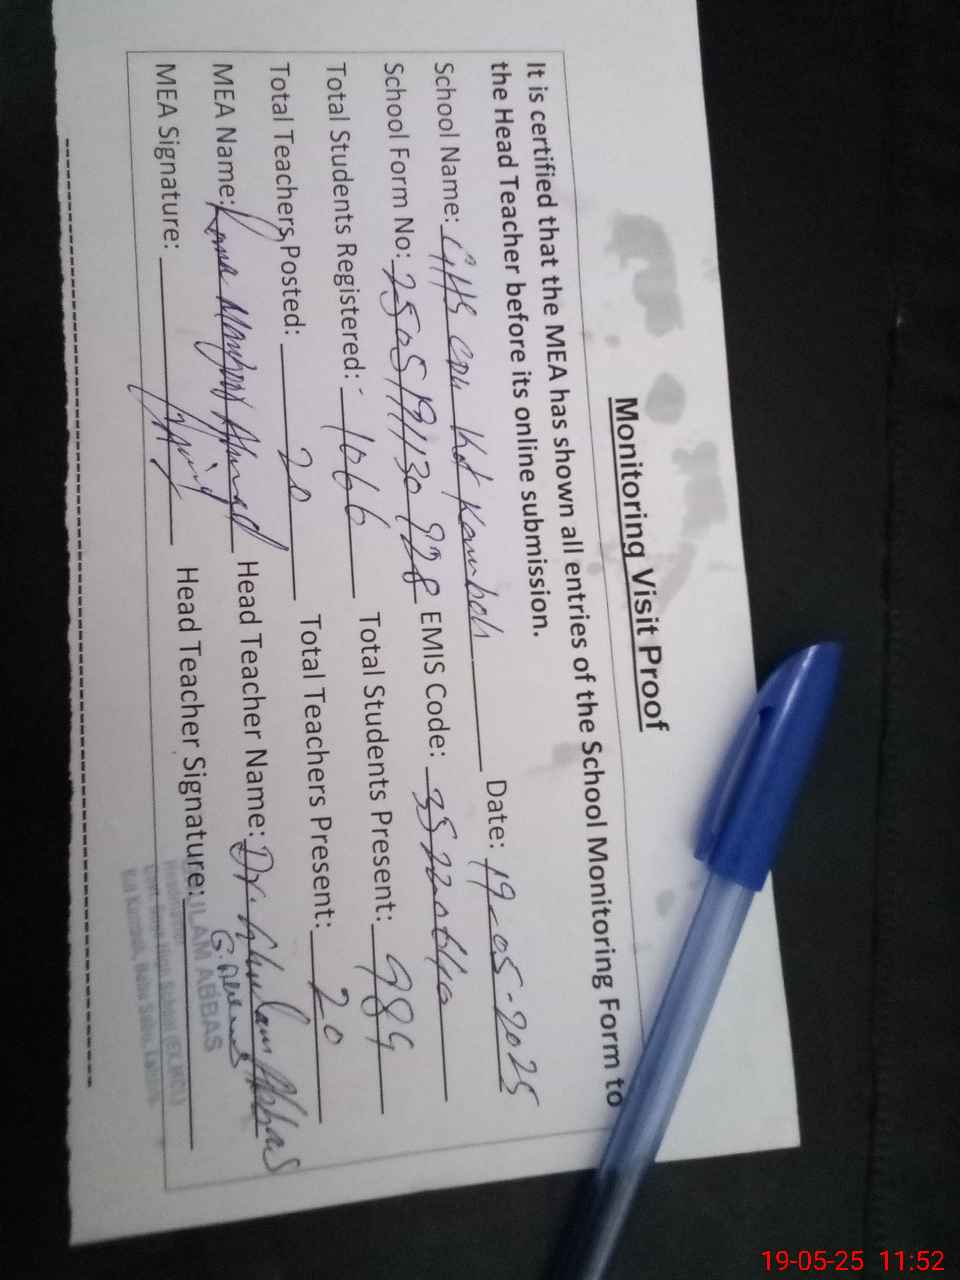 Monitoring Visit Proof
It is certified that the MEA has shown all entries of the School Monitoring Form to
the Head Teacher before its online submission.
School Name: GHS Kot Kamboh Date: 19-05-2025
School Form No: 250519130928 EMIS Code: 35220440
Total Students Registered: 1066 Total Students Present: 989
Total Teachers Posted: 20 Total Teachers Present: 20
MEA Name: Rana Ahmad Head Teacher Name: Dr. Ghulam Abbas
MEA Signature: Head Teacher Signature:
ULAM ABBAS
19-05-25 11:52